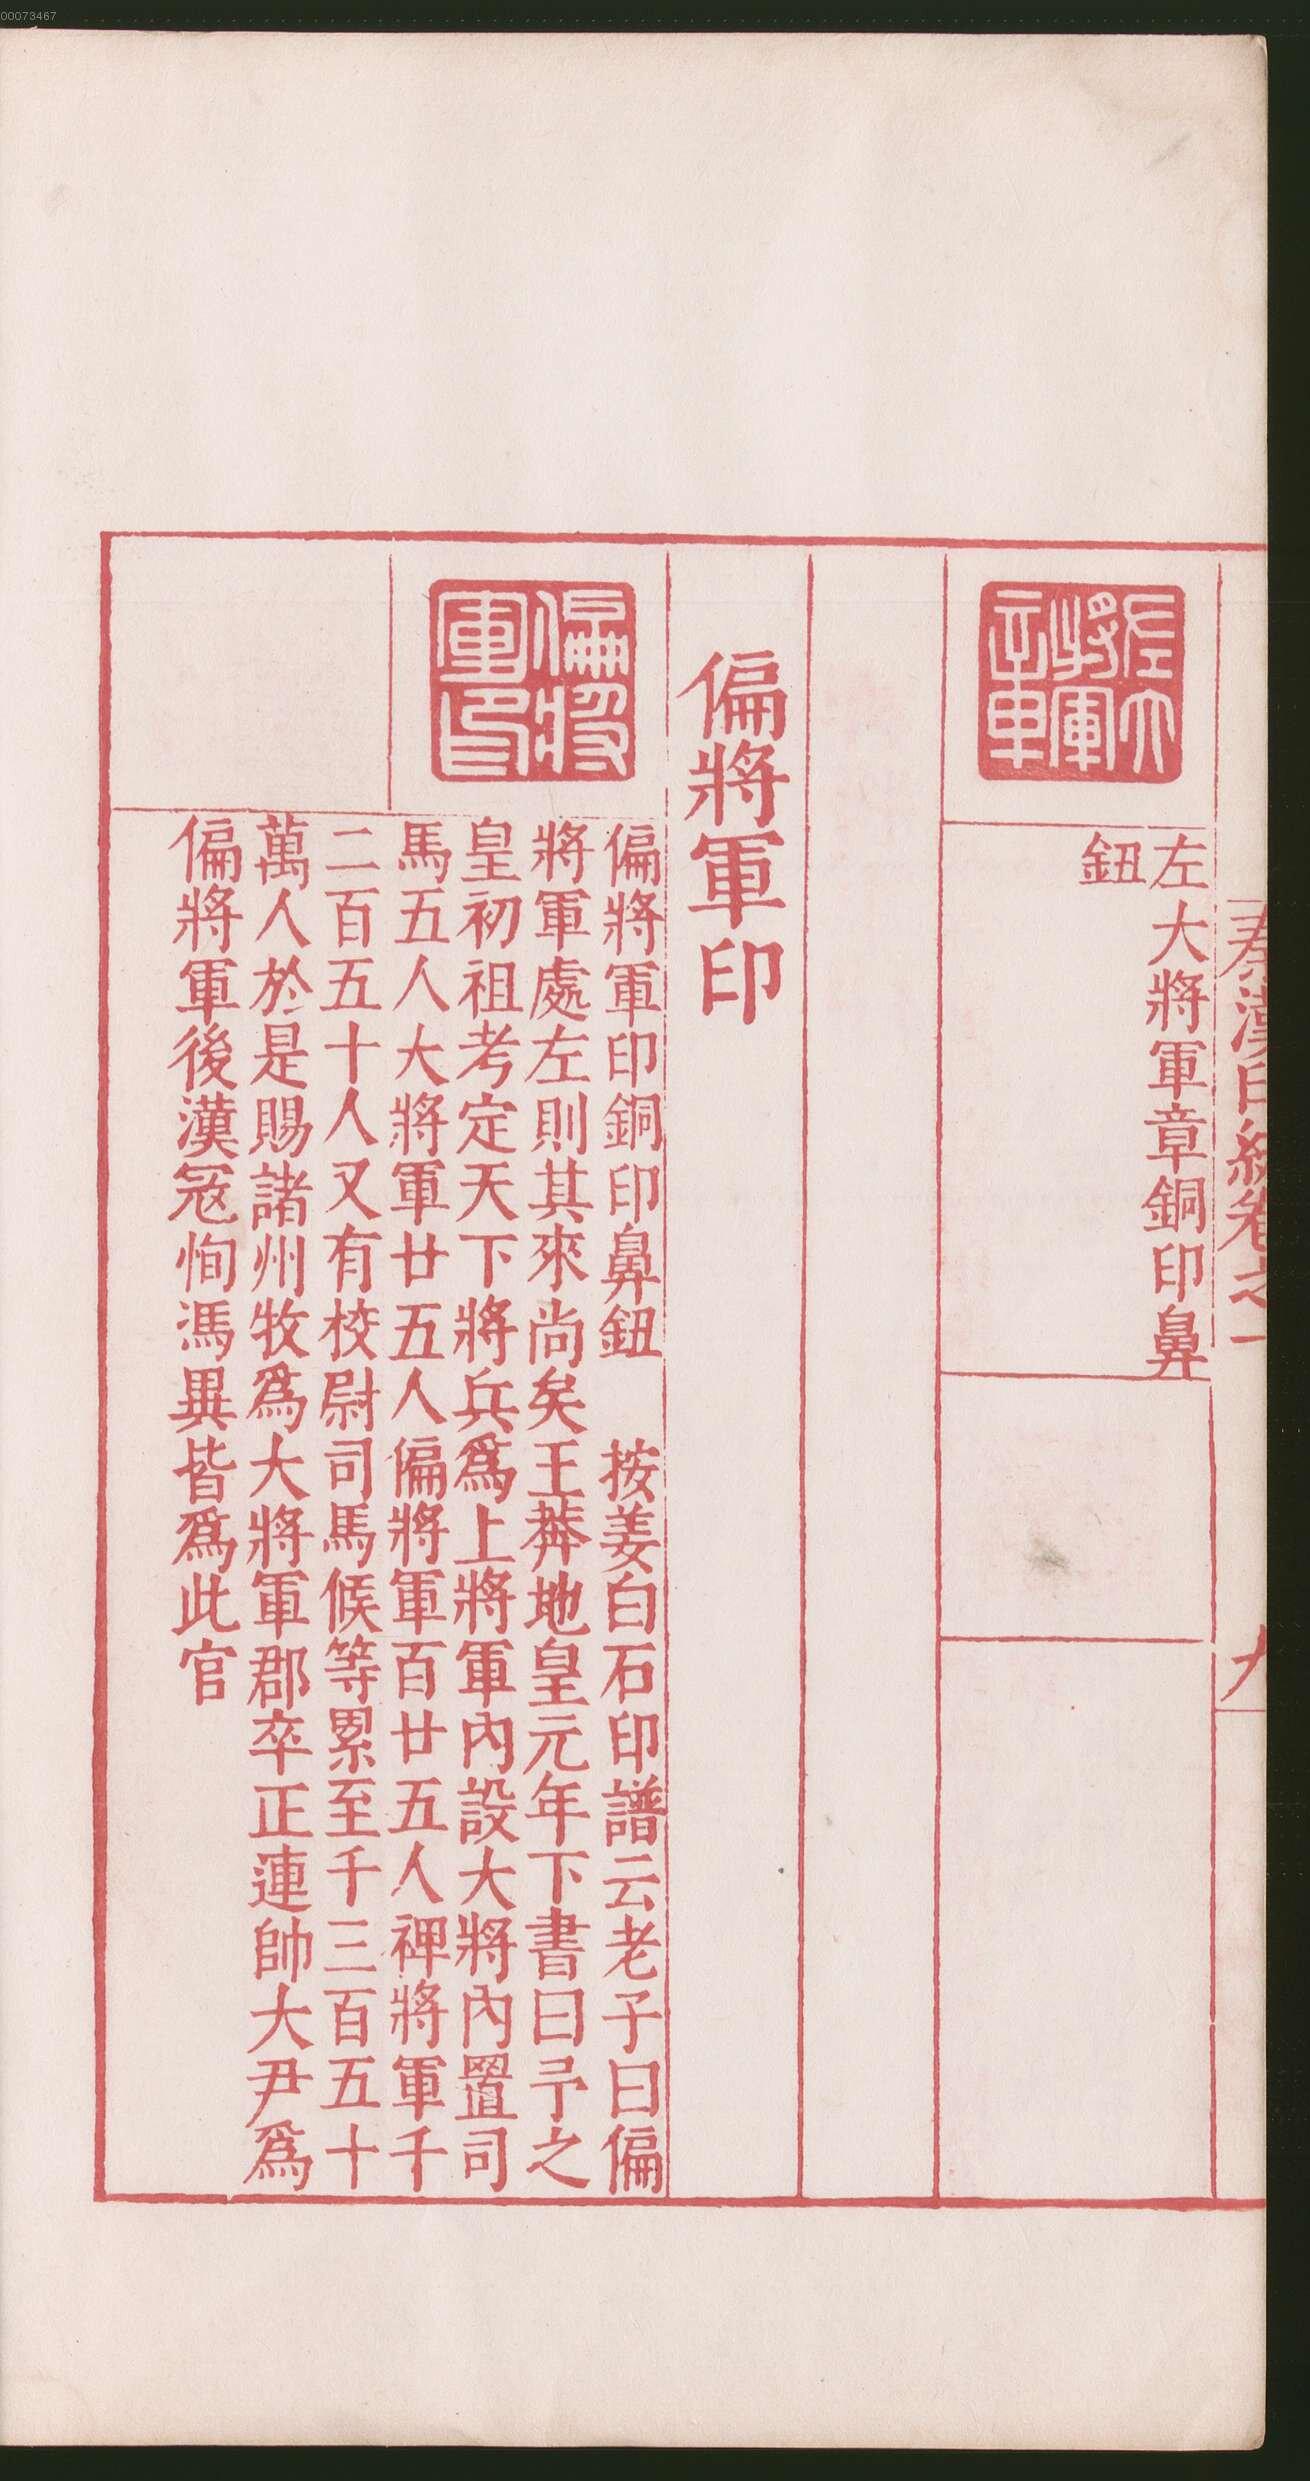 00073467
秦漢印統卷之一
九
左大將軍章
左大將軍章銅印鼻
鈕
偏將軍印
偏將軍印
偏將軍印銅印鼻鈕　按姜白石印譜云老子曰偏
將軍處左則其來尚矣王莽地皇元年下書曰予之
皇初祖考定天下將兵爲上將軍內設大將內置司
馬五人大將軍廿五人偏將軍百廿五人裨將軍千
二百五十人又有校尉司馬候等累至千三百五十
萬人於是賜諸州牧爲大將軍郡卒正連帥大尹爲
偏將軍後漢冦恂馮異皆爲此官